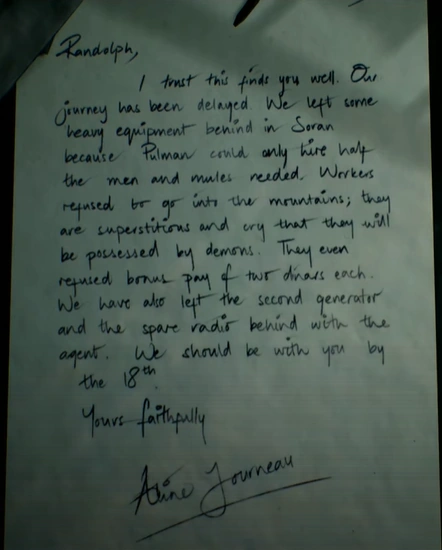 Randolph,
I trust this finds you well. Our
journey has been delayed. We left some
heavy equipment behind in Soran
because Pulman could only hire half
the men and mules needed. Workers
refused to go into the mountains; they
are superstitious and cry that they will
be possessed by demons. They even
refused bonus pay of two dinars each.
We have also left the second generator
and the spare radio behind with the
agent. We should be with you by
the 18th.
Yours faithfully
Aline Journeau